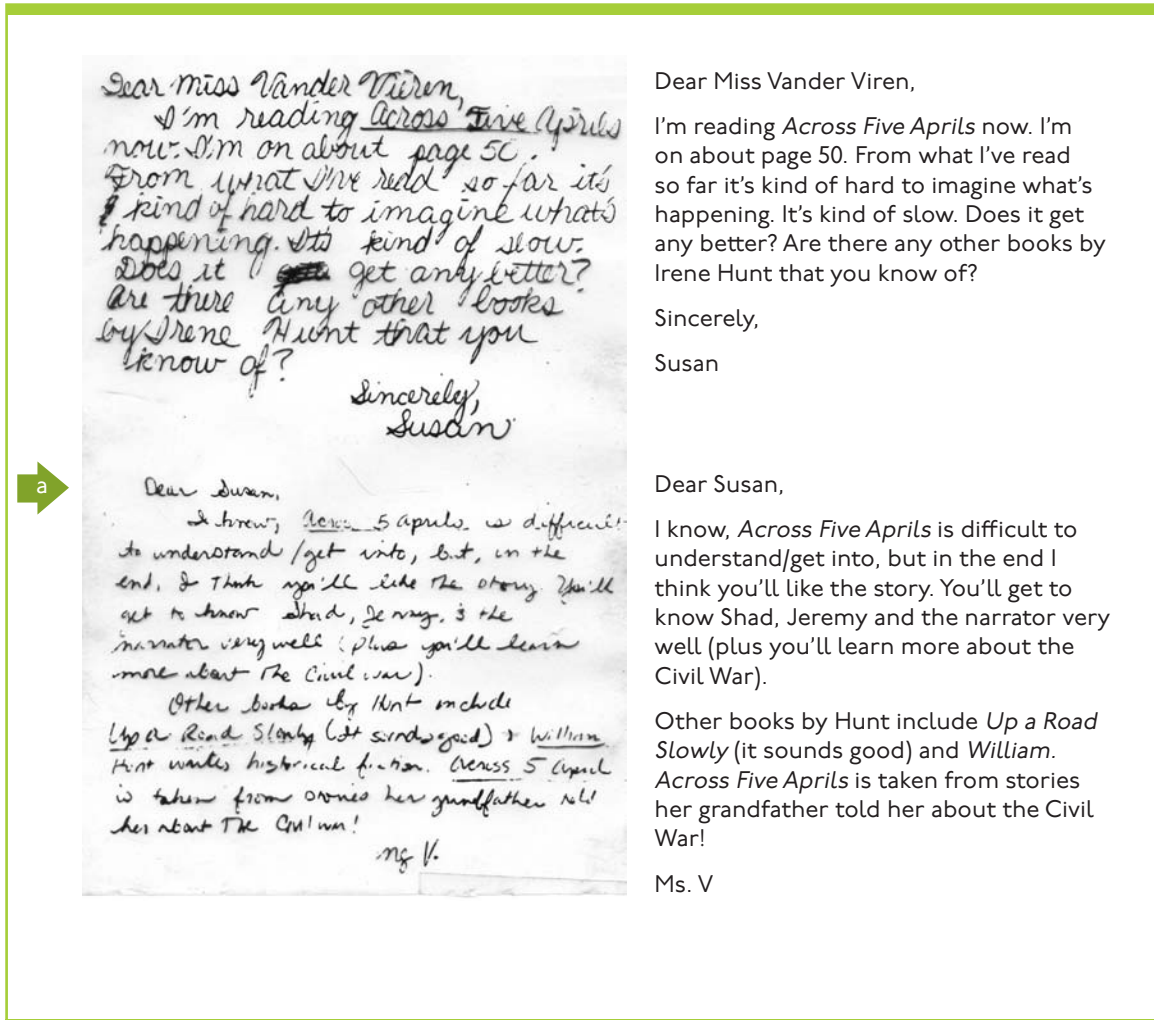 Dear Miss Vander Vieren,
I'm reading Across Five Aprils
now. I'm on about page 50.
From what I've read so far it's
kind of hard to imagine what's
happening. It's kind of slow.
Does it get any better?
Are there any other books
by Irene Hunt that you
know of?
Sincerely,
Susan
a
Dear Susan,
I know, Across 5 Aprils is difficult
to understand/get into, but, in the
end, I think you'll like the story. You'll
get to know Shad, Jeremy, & the
narrator very well (plus you'll learn
more about the Civil War).
Other books by Hunt include
Up a Road Slowly (it sounds good) & William.
Hunt writes historical fiction. Across 5 April
is taken from stories her grandfather told
her about the Civil War!
Ms V.
Dear Miss Vander Viren,
I'm reading Across Five Aprils now. I'm
on about page 50. From what I've read
so far it's kind of hard to imagine what's
happening. It's kind of slow. Does it get
any better? Are there any other books by
Irene Hunt that you know of?
Sincerely,
Susan
Dear Susan,
I know, Across Five Aprils is difficult to
understand/get into, but in the end I
think you'll like the story. You'll get to
know Shad, Jeremy and the narrator very
well (plus you'll learn more about the
Civil War).
Other books by Hunt include Up a Road
Slowly (it sounds good) and William.
Across Five Aprils is taken from stories
her grandfather told her about the Civil
War!
Ms. V